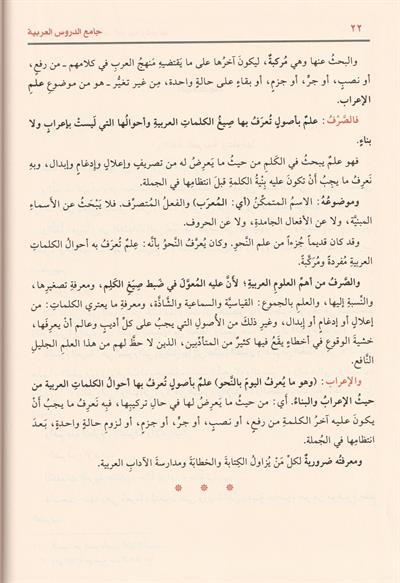 ٢٢ جامع الدروس العربية
والبحثُ عنها وهي مُركبةٌ، ليكونَ آخرُها على ما يَقتضيهِ مَنهجُ العربِ في كلامهم ـ من رفعٍ،
أو نصبٍ، أو جرٍّ، أو جزمٍ، أو بقاءٍ على حالةٍ واحدة، مِن غير تغيُّر ـ هو من موضوع علمِ
الإعراب.
فالصَّرْفُ: علمٌ بأصولٍ تُعرَفُ بها صِيغُ الكلمات العربيةِ وأحوالُها التي لَيستْ بإعرابٍ ولا
بناءٍ.
فهو علمٌ يبحثُ في الكَلمِ من حيثُ ما يَعرِضُ له من تصريفٍ وإعلالٍ وإدغامٍ وإبدال، وبهِ
نَعرِفُ ما يجِبُ أنْ تكونَ عليه بِنْيَةُ الكلمةِ قبلَ انتظامِها في الجملة.
وموضوعُهُ: الاسمُ المتمكِّنُ (أي: المُعرَب) والفعلُ المُتصرِّف. فلا يَبْحَثُ عن الأسماءِ
المبنيَّة، ولا عن الأفعال الجامدةِ، ولا عن الحروف.
وقد كان قديماً جُزءاً من علمِ النَّحو. وكان يُعرَّفُ النَّحوُ بأنَّه: عِلمٌ تُعرَفُ به أحوالُ الكلماتِ
العربيةِ مُفردةً ومُركَّبةً.
والصَّرفُ من أهمِّ العلوم العربيةِ؛ لأنَّ عليه المُعوَّلَ في ضَبط صِيَغِ الكَلِم، ومعرفةِ تصغيرِها،
والنِّسبةِ إليها، والعلمِ بالجموع: القياسيَّة والسماعية والشَّاذَّة، ومعرفةِ ما يعتري الكلماتِ: من
إعلالٍ أو إدغامٍ أو إبدال، وغيرِ ذلك من الأُصولِ التي يجب على كلِّ أديبٍ وعالم أنْ يعرِفَها،
خشيةَ الوقوع في أخطاءٍ يقعُ فيها كثيرٌ من المتأدِّبين، الذين لا حظَّ لهم من هذا العلمِ الجليلِ
النَّافع.
والإعرابُ: (وهو ما يُعرفُ اليومَ بالنَّحو) علمٌ بأصولٍ تُعرفُ بها أحوالُ الكلماتِ العربية من
حيثُ الإعرابُ والبناءُ. أي: من حيثُ ما يَعرِضُ لها في حالِ تركيبِها، فبِه نَعرِفُ ما يجبُ أنْ
يكونَ عليه آخرُ الكلمةِ من رفعٍ، أو نَصبٍ، أو جرٍّ، أو جزمٍ، أو لزومِ حالةٍ واحدةٍ، بَعدَ
انتظامِها في الجُملة.
ومعرفتُه ضروريةٌ لكلِّ مَنْ يُزاولُ الكِتابةَ والخطابَةَ ومدارسةَ الآدابِ العربية.